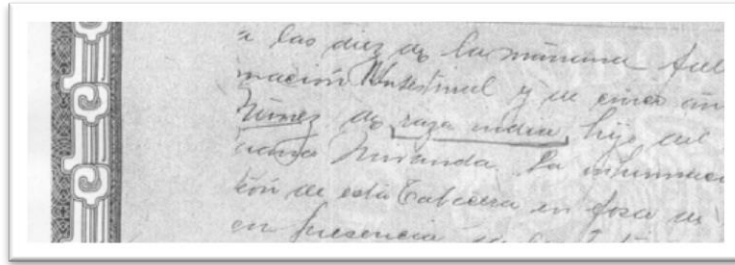 a las diez de la mañana fall
mación Intestinal y de cinco añ
Núñez de raza india, hijo del
ciana Miranda. La inhumac
tón de esta Cabecera en fosa de
en presencia